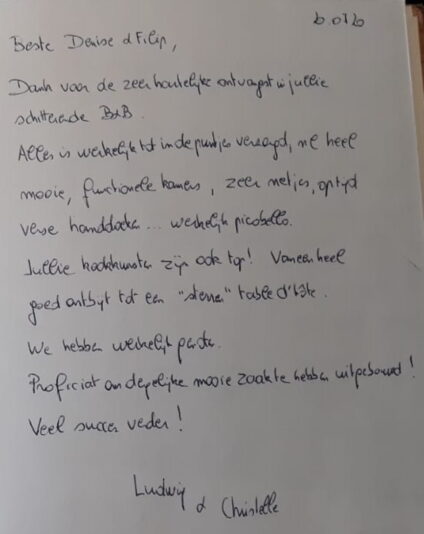 Beste Denise & Filip,
Dank voor de zeer hartelijke ontvangst in jullie
schitterende B&B.
Alles is werkelijk tot in de puntjes verzorgd, nl heel
mooie, functionele kamers, zeer netjes, op tijd
verse handdoeken ... werkelijk picobello.
Jullie kookkunsten zijn ook top! Van een heel
goed ontbijt tot een "sterren" table d'hôte.
We hebben werkelijk
Proficiat om degelijke mooie zaak te hebben uitgebouwd!
Veel succes verder!
Ludwig
& Christelle